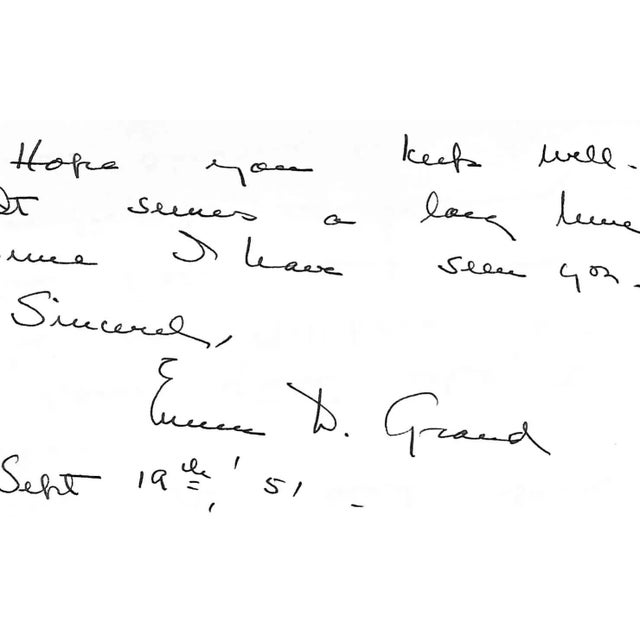 Hope you keep well.
It seems a long time
since I have seen you.
Sincerely,
Emma D. Grand
Sept 19th, '51